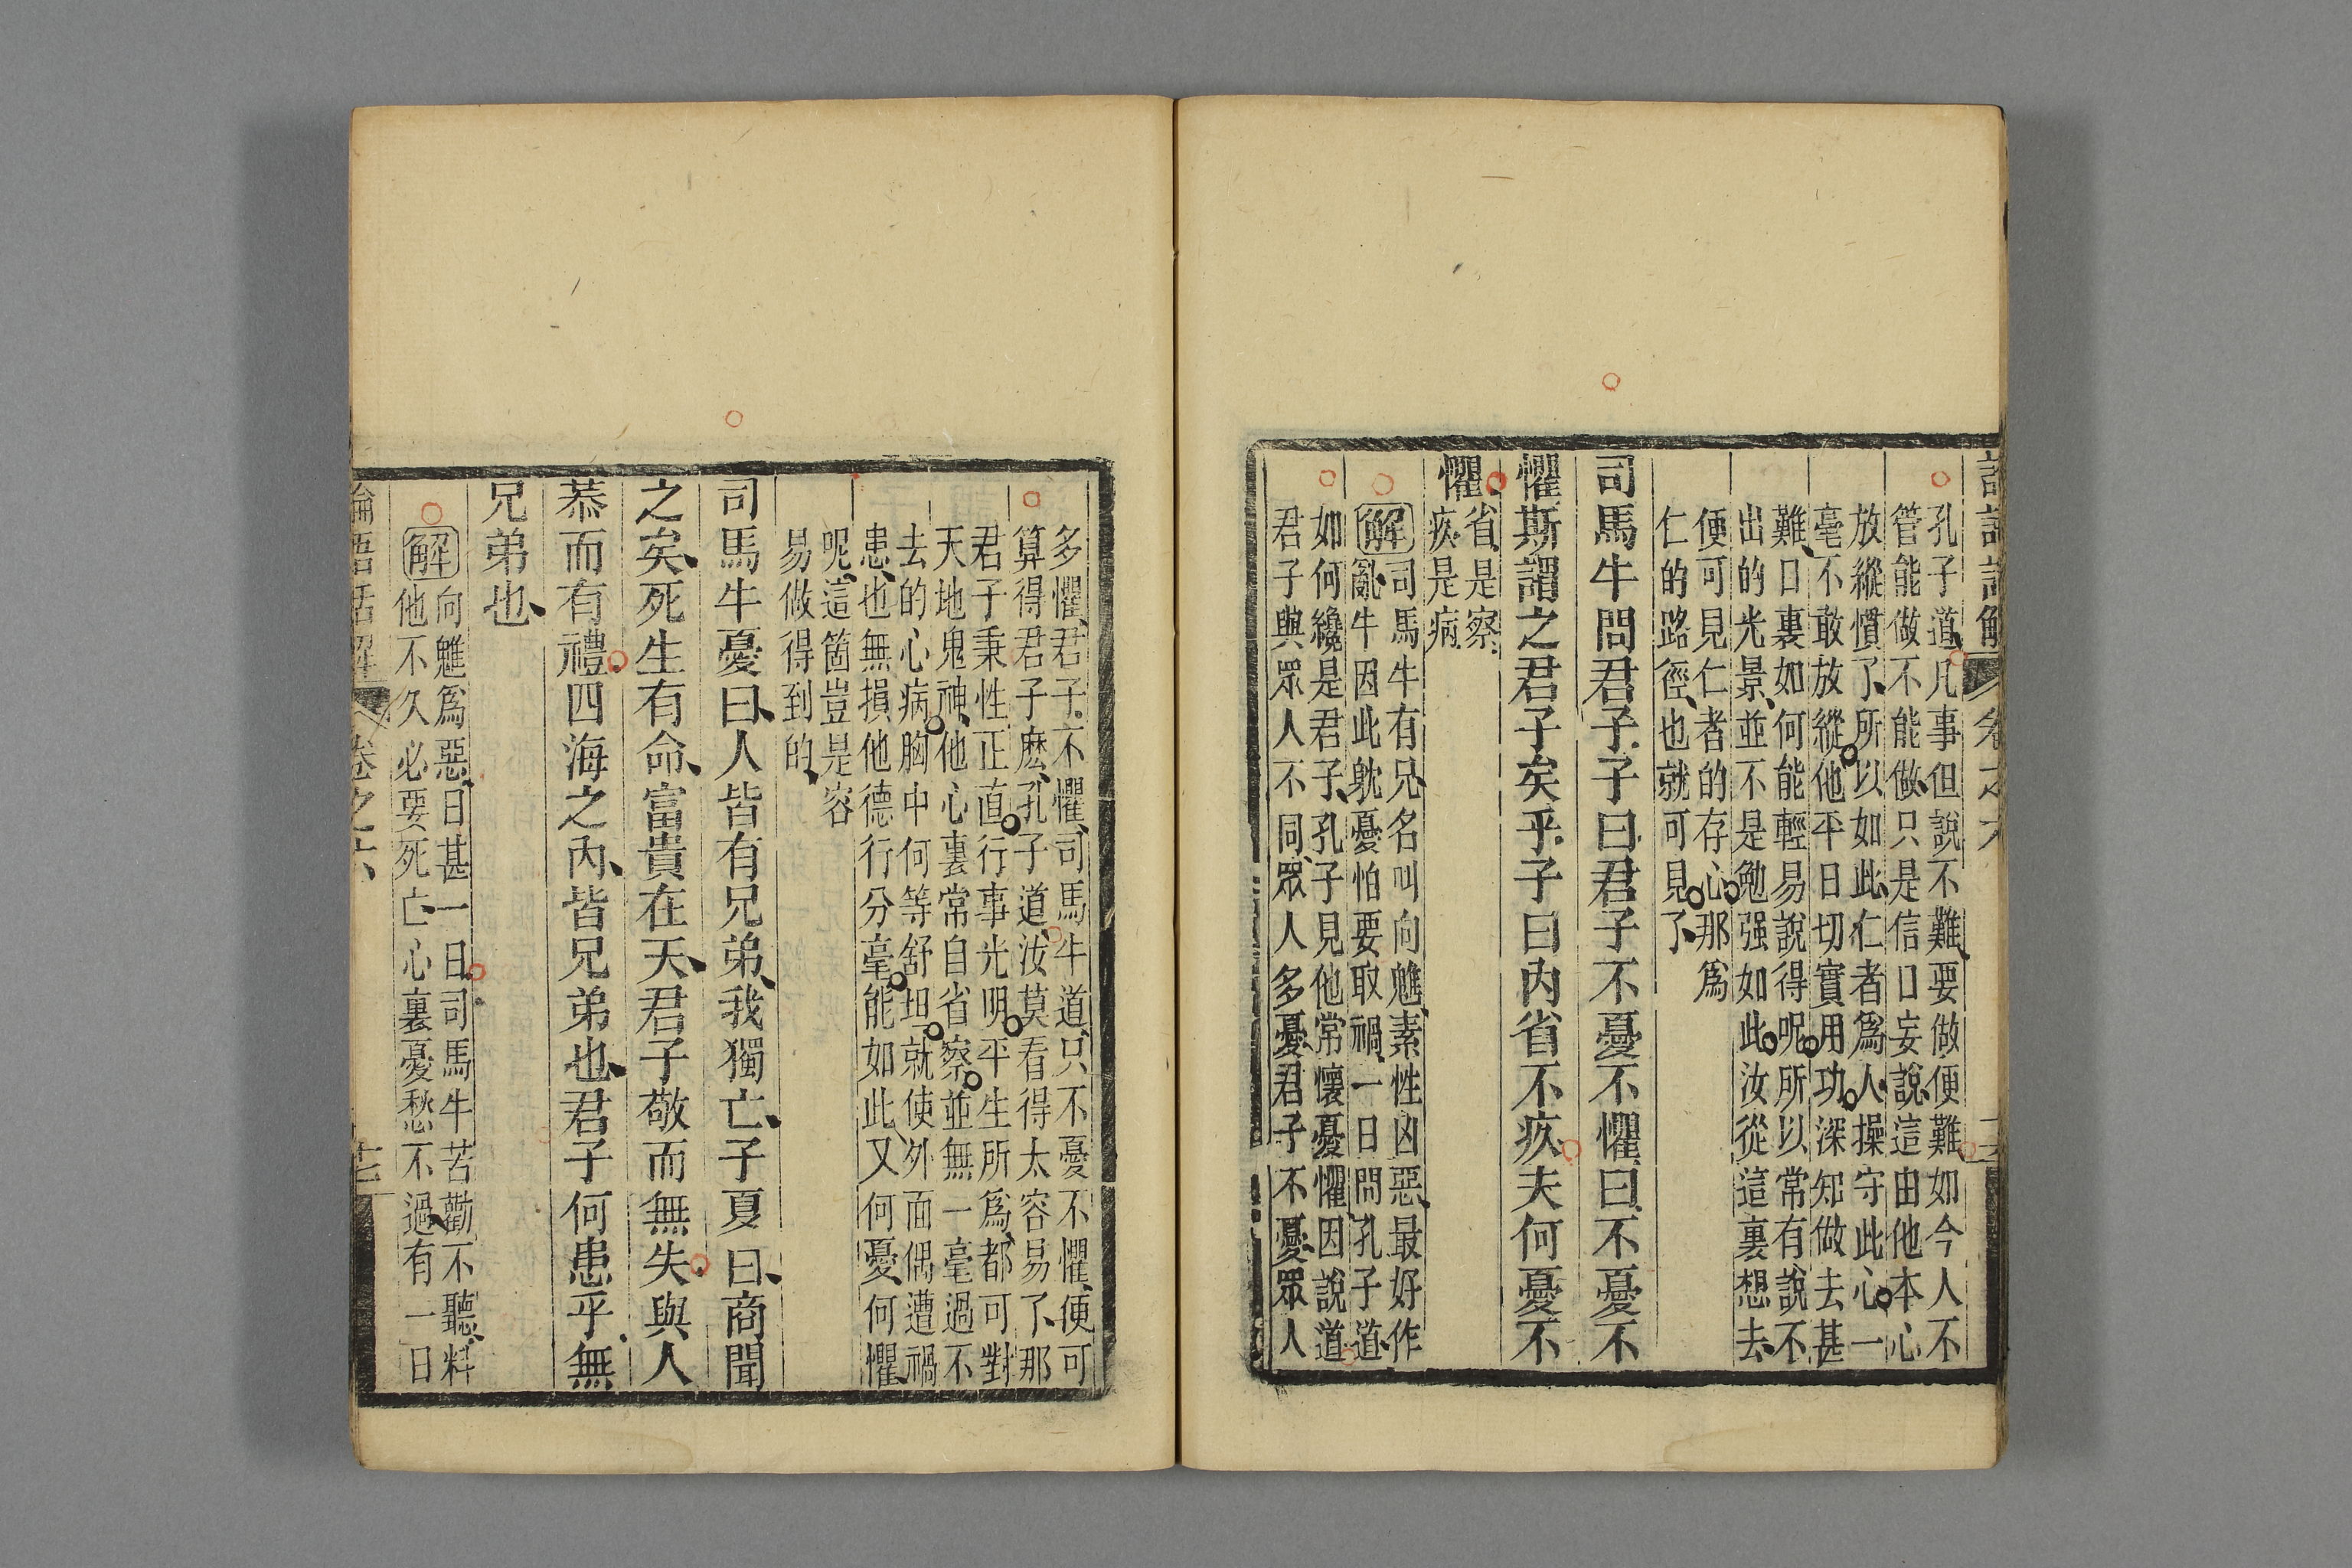 孔子道凡事但說不難要做便難如今人不
管能做不能做只是信口妄說這由他本心
放縱慣了所以如此仁者爲人操守此心一
毫不敢放縱他平日切實用功深知做去甚
難口裏如何能輕易說得呢所以常有說不
出的光景並不是勉强如此汝從這裏想去
便可見仁者的存心那爲
仁的路徑也就可見了
司馬牛問君子子曰君子不憂不懼曰不憂不
懼斯謂之君子矣乎子曰內省不疚夫何憂不
懼
省是察
疚是病
解司馬牛有兄名叫向魋素性凶惡最好作
亂牛因此躭憂怕要取禍一日問孔子道
如何纔是君子孔子見他常懷憂懼因說道
君子與眾人不同眾人多憂君子不憂眾人
多懼君子不懼司馬牛道只不憂不懼便可
算得君子麽孔子道汝莫看得太容易了那
君子秉性正直行事光明平生所爲都可對
天地鬼神他心裏常自省察並無一毫過不
去的心病胸中何等舒坦就使外面偶遭禍
患也無損他德行分毫能如此又何憂何懼
呢這箇豈是容
易做得到的
司馬牛憂曰人皆有兄弟我獨亡子夏曰商聞
之矣死生有命富貴在天君子敬而無失與人
恭而有禮四海之內皆兄弟也君子何患乎無
兄弟也
解向魋爲惡日甚一日司馬牛苦勸不聽料
他不久必要死亡心裏憂愁不過有一日
論語話解 卷之六 十七